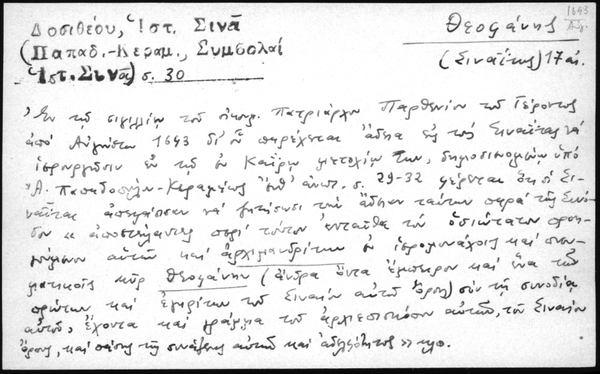 1643
Αύγ.
Δοσιθέου, Ἱστ. Σινᾶ
(Παπαδ.-Κεραμ., Συμβολαί
Ἱστ. Σινᾶ) σ. 30
Θεοφάνης
(Σιναΐτης) 17 αἰ.
Ἐν τῷ σιγιλλίῳ τοῦ οἰκουμ. Πατριάρχου Παρθενίου τοῦ Γέροντος
ἀπό Αὐγούστου 1643 δι' οὗ παρέχεται ἄδεια εἰς τούς Σιναΐτας νά
ἱερουργῶσιν ἐν τῷ ἐν Καΐρῳ μετοχίῳ των, δημοσιευομένῳ ὑπό
Ἀ. Παπαδοπούλου-Κεραμέως ἔνθ' ἀνωτ. σ. 29-32 φέρεται ὅτι οἱ Σι-
ναΐται ἀπεφάσισαν νά ζητήσωσι τήν ἄδειαν ταύτην παρά τῆς Συνό-
δου « ἀποστείλαντες περί τούτου ἐνταῦθα τόν ὁσιώτατον προη-
γούμενον αὐτῶν καί ἀρχιμανδρίτην ἐν ἱερομονάχοις καί πνευ-
ματικοῖς κύρ Θεοφάνην (ἄνδρα ὄντα ἔμπειρον καί ἕνα τῶν
πρώτων καί ἐγκρίτων τοῦ Σιναίου αὐτοῦ ὄρους) σύν τῇ συνοδίᾳ
αὐτοῦ, ἔχοντα καί γράμμα τοῦ ἀρχιεπισκόπου αὐτῶν, τοῦ Σιναίου
ὄρους, καί πάσης τῆς συνάξεως αὐτῶν καί ἀδελφότητος » κλπ.